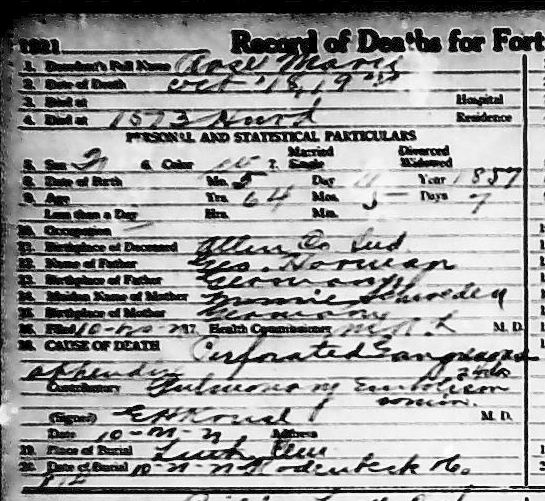 1821 Record of Deaths for Fort
1. Decedent's Full Name Rose Marie
2. Date of Death Oct 18, 19
3. Died at Hospital
4. Died at 1573 Hurd Residence
PERSONAL AND STATISTICAL PARTICULARS
Married Divorced
5. Sex 6. Color W 7. Single Widowed
8. Date of Birth Mo. 5 Day 11 Year 1857
9. Age Yrs. 64 Mos. 5 Days 7
Less than a Day Hrs. Min.
10. Occupation —
11. Birthplace of Deceased Allen Co Ind
12. Name of Father Geo. Horman
13. Birthplace of Father Germany
14. Maiden Name of Mother Minnie Schroeder
15. Birthplace of Mother Germany
16. Filed 10- 17. Health Commissioner M. D.
18. CAUSE OF DEATH Perforated Gangrenous
appendix
Contributory Pulmonary Embolism
(Signed) M. D.
Date 10- Address
19. Place of Burial Luth Cem
20. Date of Burial 10-